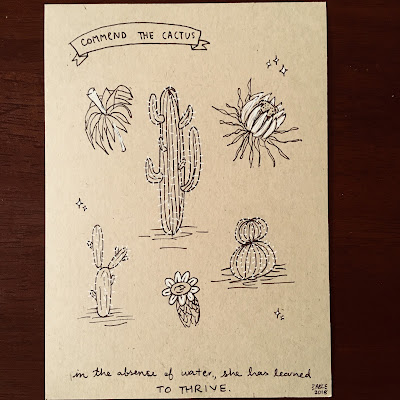 COMMEND THE CACTUS
in the absense of water, she has learned
TO THRIVE.
2018